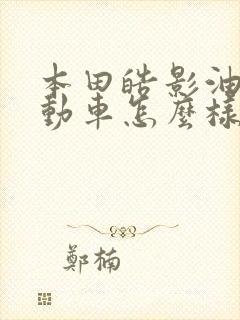 本田皓影油
動車怎麼樣
鄭楠